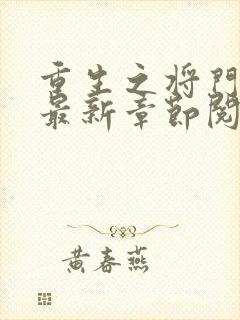 重生之将门
最新章节阅
黄春燕